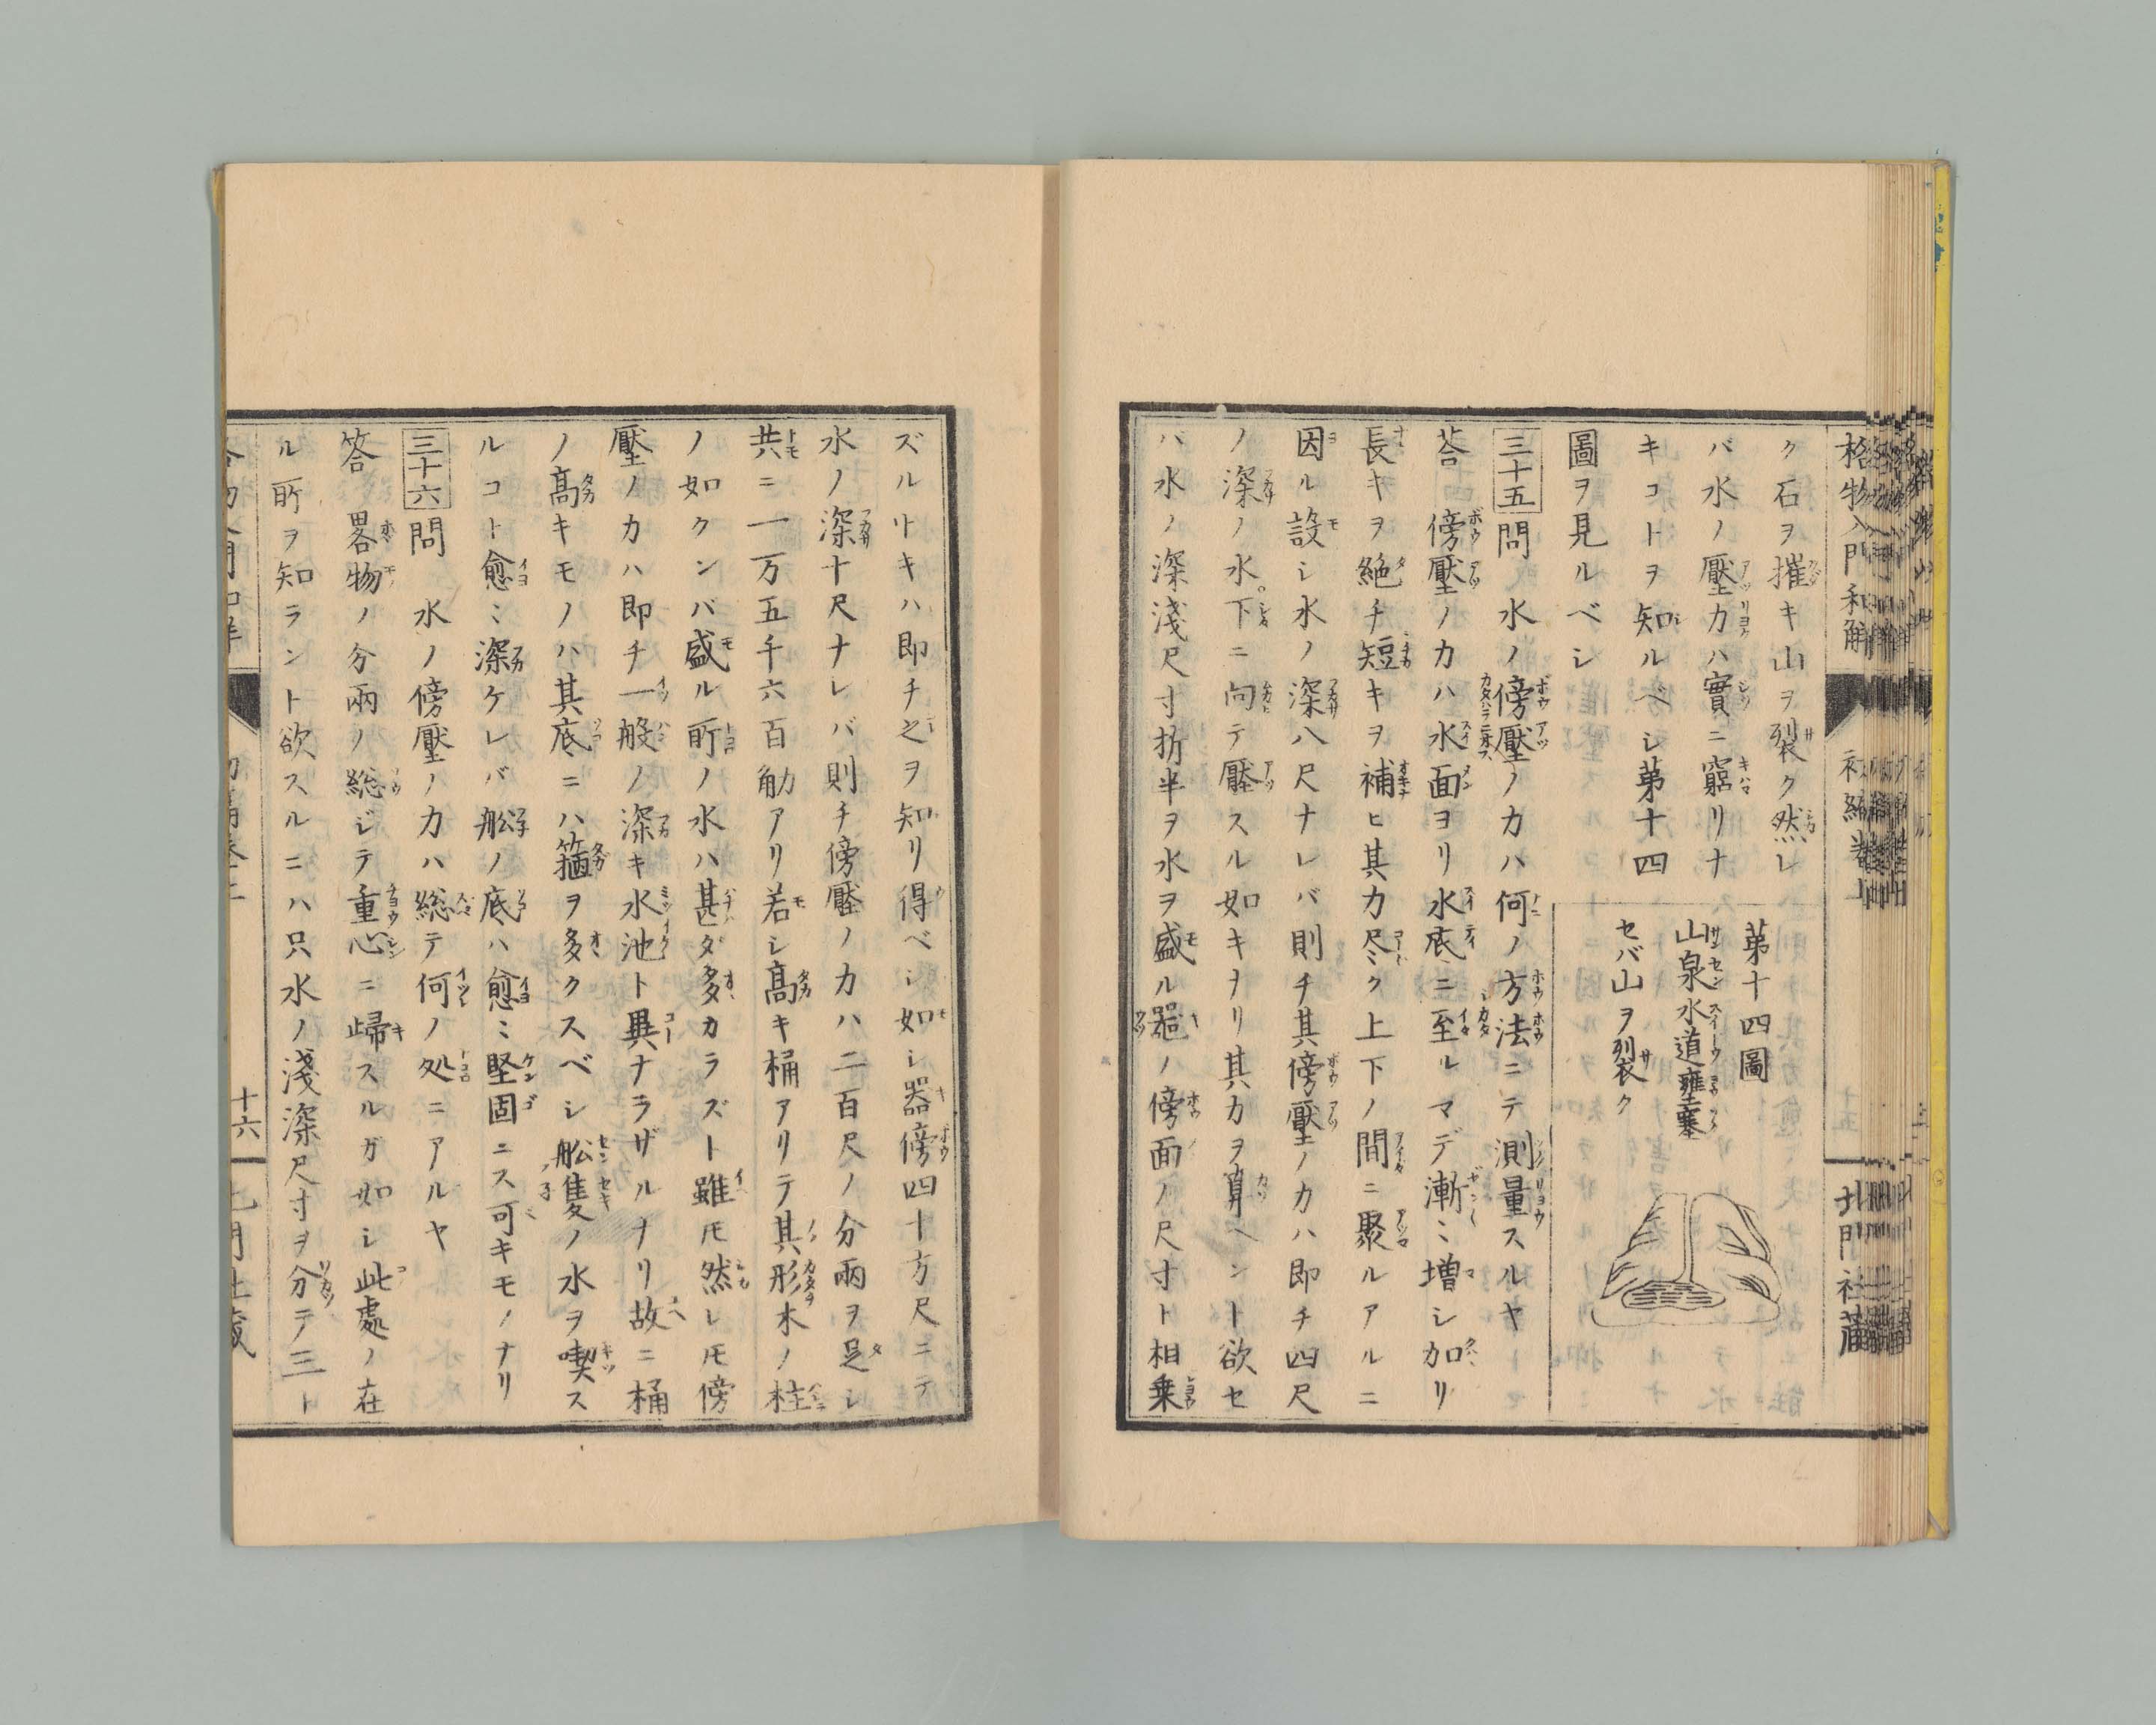 格物入門和解
初編巻上
北門社蔵
ク石ヲ摧キ山ヲ裂ク然レ
バ水ノ壓力ハ實ニ窮リナ
キコトヲ知ルベシ第十四
圖ヲ見ルベシ
第十四圖
山泉水道壅塞
セバ山ヲ裂ク
三十五問 水ノ傍壓ノ力ハ何ノ方法ニテ測量スルヤ
荅 傍壓ノ力ハ水面ヨリ水底ニ至ルマデ漸〻増シ加リ
長キヲ絶チ短キヲ補ヒ其力尽ク上下ノ間ニ聚ルアルニ
因ル設シ水ノ深八尺ナレバ則チ其傍壓ノ力ハ即チ四尺
ノ深ノ水。下ニ向テ壓スル如キヲリ其力ヲ算ヘント欲セ
バ水ノ深淺尺寸折半ヲ水ヲ盛ル噐ノ傍面ノ尺寸ト相乗
ズルトキハ即チ之ヲ知リ得ベシ如シ器傍四十方尺ニテ
水ノ深十尺ナレバ則チ傍壓ノ力ハ二百尺ノ分兩ヲ足シ
共ニ一万五千六百觔アリ若シ髙キ桶アリテ其形木ノ柱
ノ如クンバ盛ル所ノ水ハ甚ダ多カラズト雖モ然レモ傍
壓ノ力ハ即チ一般ノ深キ水池ト異ナラザルナリ故ニ桶
ノ髙キモノハ其底ニハ箍ヲ多クスベシ舩隻ノ水ヲ喫ス
ルコト愈〻深ケレバ舩ノ底ハ愈〻堅固ニス可キモノナリ
三十六問 水ノ傍壓ノ力ハ総テ何ノ処ニアルヤ
答 畧物ノ分兩ノ総ジテ重心ニ歸スルガ如シ此處ノ在
ル所ヲ知ラント欲スルニハ只水ノ淺深尺寸ヲ分テ三ト
十六